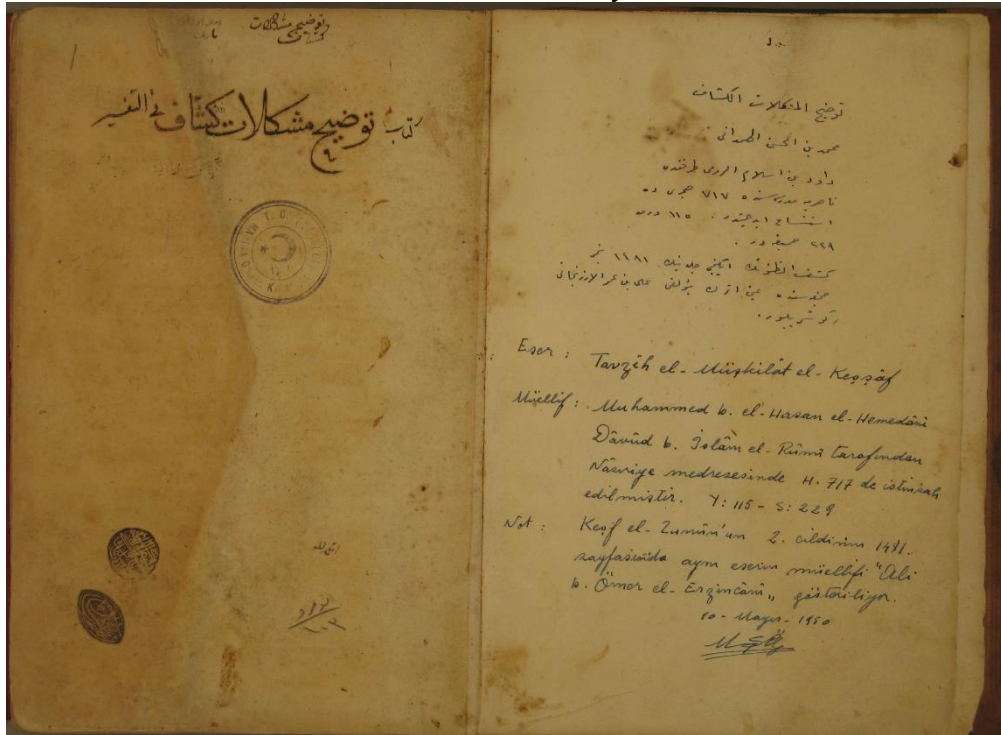 توضيح مشكلات
كتاب توضيح مشكلات كشاف في التفسير
توضيح المشكلات الكشاف
محمد بن الحسن الهمدانى
داود بن اسلام الرومى طرفندن
ناصريه مدرسه سنده ٧١٧ هجرى ده
استنساخ ايديلمشدر : ١١٥ ورق
٢٢٩ صحيفه در .
كشف الظنونك ايكنجى جلدينك ١٤٨١ نجى
صحيفه سنده عين اثرك مؤلفى على بن عمر الارزنجانى
Eser : Tavzîh el-Müşkilât el-Keşşâf
Müellif : Muhammed b. el-Hasan el-Hemedânî
Dâvûd b. İslâm el-Rûmî tarafından
Nâsıriye medresesinde H. 717 de istinsah
edilmiştir. Y: 115 - S: 229
Not : Keşf el-Zunûn'un 2. cildinin 1481.
sayfasında aynı eserin müellifi "Ali
b. Ömer el-Erzincânî„ gösteriliyor.
10 - Mayıs - 1950